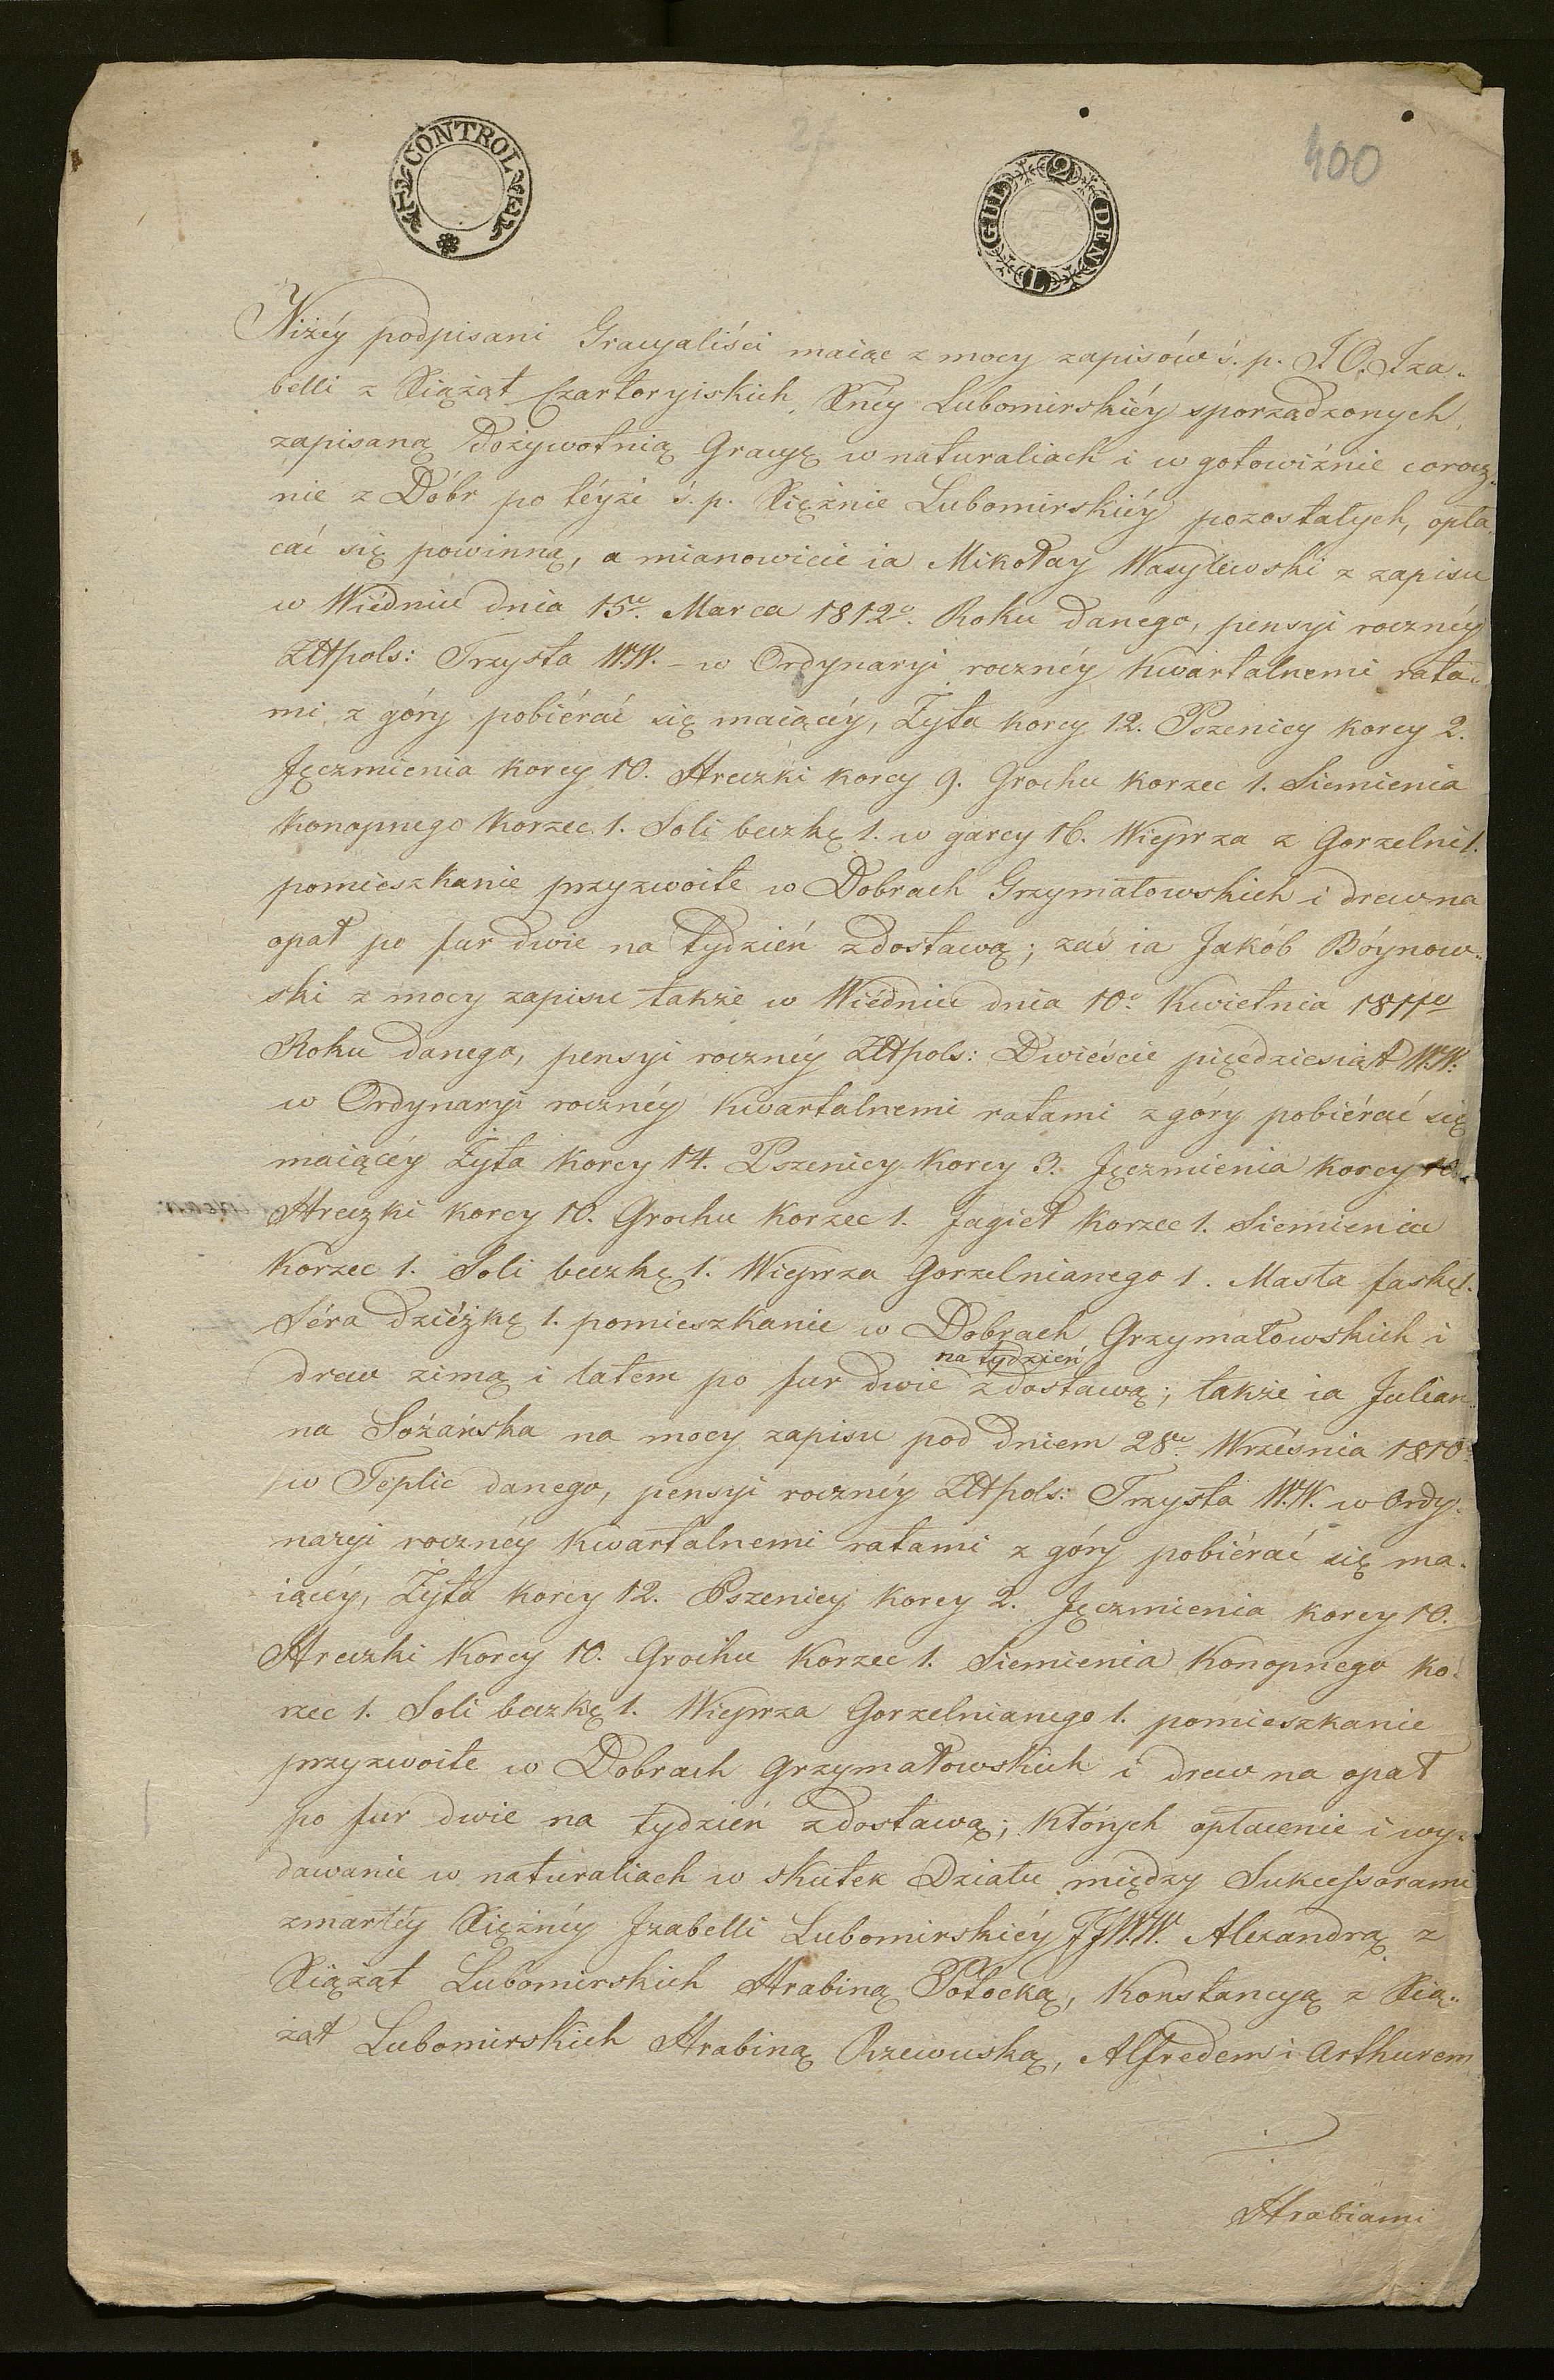 CONTROL
2 GUL DEN L
400
Niżéy podpisani Gracyaliści maiąc z mocy zapisów ś. p. J.O. Iza„
belli z Xiążąt Czartoryiskich, Xnéy Lubomirskiéy sporządzonych,
zapisaną Dożywotnią Gracyę w naturaliach i w gotowiźnie corocz„
nie z Dóbr po téyże ś. p. Xiężnie Lubomirskiéy pozostałych, opła„
cać się powinną, a mianowicie ia Mikołay Wasylewski z zapisu
w Wiédniu dnia 15º. Marca 1812º. Roku danego, pensyi rocznéy
ZłŧPols: Trzysta W.W. – w Ordynaryi rocznéy kwartalnemi rata„
mi z góry pobiérać się maiącéy, Żyta korcy 12. Pszenicy korcy 2.
Jęczmienia korcy 10. Hreczki korcy 9. Grochu korzec 1. Siemienia
konopnego korzec 1. Soli beczkę 1. w garcy 16. Wieprza z Gorzelni 1.
pomieszkanie przyzwoite w Dobrach Grzymałowskich i drew na
opał po fur dwie na tydzień z dostawą; zaś ia Jakób Bóynow„
ski z mocy zapisu także w Wiédniu dnia 10º. Kwietnia 1811go
Roku danego, pensyi rocznéy Złŧpols: Dwieście pięćdziesiąt W.W.
w Ordynaryi rocznéy kwartalnemi ratami z góry pobiérać się
maiącéy Żyta korcy 14. Pszenicy korcy 3. Jęczmienia korcy 10.
Hreczki korcy 10. Grochu korzec 1. Jagieł korzec 1. Siemienia
korzec 1. Soli beczkę 1. Wieprza Gorzelnianego 1. Masła faskę 1.
Séra dzieżkę 1. pomieszkanie w Dobrach Grzymałowskich i
na tydzień
drew zimą i latem po fur dwie z dostawą; także ia Julian„
na Soźańska na mocy zapisu pod dniem 28º. Wrześnía 1810º.
w Teplic danego, pensyi rocznéy Złŧpols: Trzysta W.W. w Ordy„
naryi rocznéy kwartalnemi ratami z góry pobiérać się ma„
iącéy, Żyta korcy 12. Pszenicy korcy 2. Jęczmienia korcy 10.
Hreczki korcy 10. Grochu korzec 1. Siemienia konopnego ko„
rzec 1. Soli beczkę 1. Wieprza Gorzelnianego 1. pomieszkanie
przyzwoite w Dobrach Grzymałowskich i drew na opał
po fur dwie na tydzień z dostawą; których opłacenie i wy„
dawanie w naturaliach w skutek Działu między Sukcessorami
zmarłéy Xiężnéy Izabelli Lubomirskiéy JJWW. Alexandrą z
Xiążąt Lubomirskich Hrabiną Potocką, Konstancyą z Xią„
żąt Lubomirskich Hrabiną Rzewuską, Alfredem i Arthurem
Hrabiami